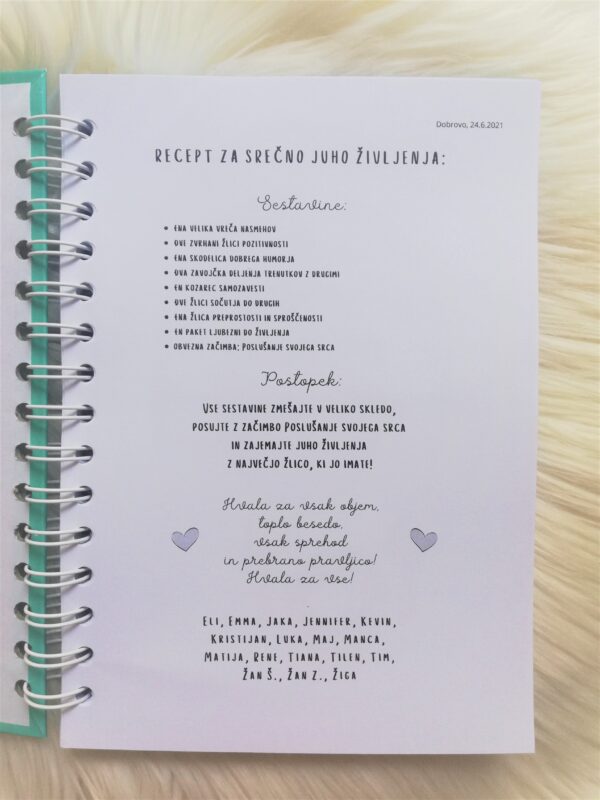 Dobrovo, 24.6.2021
RECEPT ZA SREČNO JUHO ŽIVLJENJA:
Sestavine:
• ENA VELIKA VREČA NASMEHOV
• DVE ZVRHANI ŽLICI POZITIVNOSTI
• ENA SKODELICA DOBREGA HUMORJA
• DVA ZAVOJČKA DELJENJA TRENUTKOV Z DRUGIMI
• EN KOZAREC SAMOZAVESTI
• DVE ŽLICI SOČUTJA DO DRUGIH
• ENA ŽLICA PREPROSTOSTI IN SPROŠČENOSTI
• EN PAKET LJUBEZNI DO ŽIVLJENJA
• OBVEZNA ZAČIMBA: POSLUŠANJE SVOJEGA SRCA
Postopek:
VSE SESTAVINE ZMEŠAJTE V VELIKO SKLEDO,
POSUJTE Z ZAČIMBO POSLUŠANJE SVOJEGA SRCA
IN ZAJEMAJTE JUHO ŽIVLJENJA
Z NAJVEČJO ŽLICO, KI JO IMATE!
Hvala za vsak objem,
toplo besedo,
vsak sprehod
in prebrano pravljico!
Hvala za vse!
ELI, EMMA, JAKA, JENNIFER, KEVIN,
KRISTIJAN, LUKA, MAJ, MANCA,
MATIJA, RENE, TIANA, TILEN, TIM,
ŽAN Š., ŽAN Z., ŽIGA